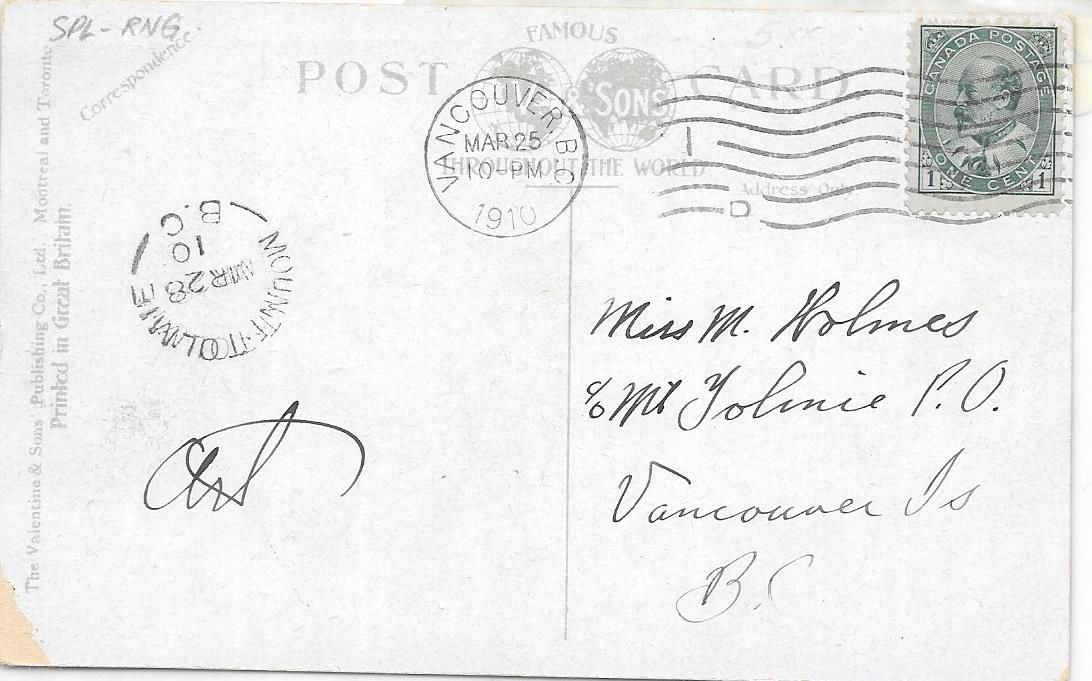 SPL-RNG.
5 xx
Correspondence.
FAMOUS
POST CARD.
& SONS'
THROUGHOUT THE WORLD
Address Only
VANCOUVER, B.C.
MAR 25
10-PM
1910
1
D
CANADA POSTAGE
ONE CENT
1 1
MOUNT-TOLMIE
MR 28
10
B.C
The Valentine & Sons Publishing Co., Ltd. Montreal and Toronto
Printed in Great Britain.
Miss M. Holmes
c/o Mt Tolmie P.O.
Vancouver Is
B.C